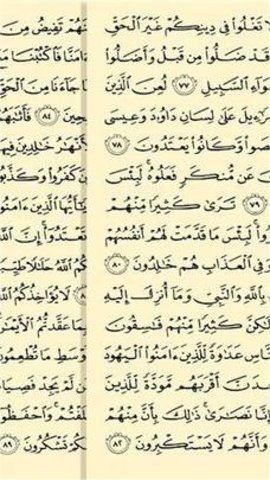 لَا تَغْلُوا۟ فِى دِينِكُمْ غَيْرَ ٱلْحَقِّ
قَدْ ضَلُّوا۟ مِن قَبْلُ وَأَضَلُّوا۟
وَآءِ ٱلسَّبِيلِ ٧٧ لُعِنَ ٱلَّذِينَ
رَٰٓءِيلَ عَلَىٰ لِسَانِ دَاوُۥدَ وَعِيسَى
صَوا۟ وَّكَانُوا۟ يَعْتَدُونَ ٧٨
نَ عَن مُّنكَرٍ فَعَلُوهُ ۚ لَبِئْسَ
٧٩ تَرَىٰ كَثِيرًا مِّنْهُمْ
وا۟ ۚ لَبِئْسَ مَا قَدَّمَتْ لَهُمْ أَنفُسُهُمْ
وَفِى ٱلْعَذَابِ هُمْ خَٰلِدُونَ ٨٠
بِٱللَّهِ وَٱلنَّبِىِّ وَمَآ أُنزِلَ إِلَيْهِ
لَٰكِنَّ كَثِيرًا مِّنْهُمْ فَٰسِقُونَ
نَّاسِ عَدَٰوَةً لِّلَّذِينَ ءَامَنُوا۟ ٱلْيَهُودَ
جِدَنَّ أَقْرَبَهُم مَّوَدَّةً لِّلَّذِينَ
إِنَّا نَصَٰرَىٰ ۚ ذَٰلِكَ بِأَنَّ مِنْهُمْ
وَأَنَّهُمْ لَا يَسْتَكْبِرُونَ ٨٢
نَهُمْ تَفِيضُ مِنَ
ءَامَنَّا فَٱكْتُبْنَا
مَا جَآءَنَا مِنَ ٱلْحَقِّ
حِينَ ٨٤ فَأَثَٰبَهُمُ
أَنْهَٰرُ خَٰلِدِينَ فِيهَا
نَ كَفَرُوا۟ وَكَذَّبُوا۟
يَٰٓأَيُّهَا ٱلَّذِينَ ءَامَنُوا۟
تَعْتَدُوٓا۟ ۚ إِنَّ ٱللَّهَ
كُمُ ٱللَّهُ حَلَٰلًا طَيِّبًا
لَا يُؤَاخِذُكُمُ ٱللَّهُ
مَا عَقَّدتُّمُ ٱلْأَيْمَٰنَ
وْسَطِ مَا تُطْعِمُونَ
ن لَّمْ يَجِدْ فَصِيَامُ
لَفْتُمْ ۚ وَٱحْفَظُوٓا۟
كُمْ تَشْكُرُونَ ٨٩